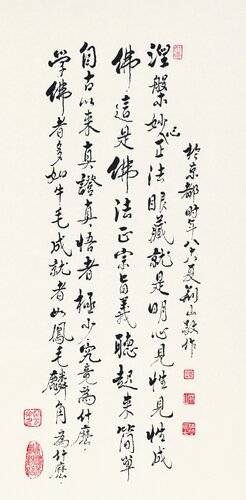 涅槃妙心正法眼藏就是明心見性見性成
佛這是佛法正宗旨義聽起來簡單
自古以來真證真悟者極少究竟為什麼
學佛者多如牛毛成就者如鳳毛麟角為什麼
於京都時年八六夏山敬作